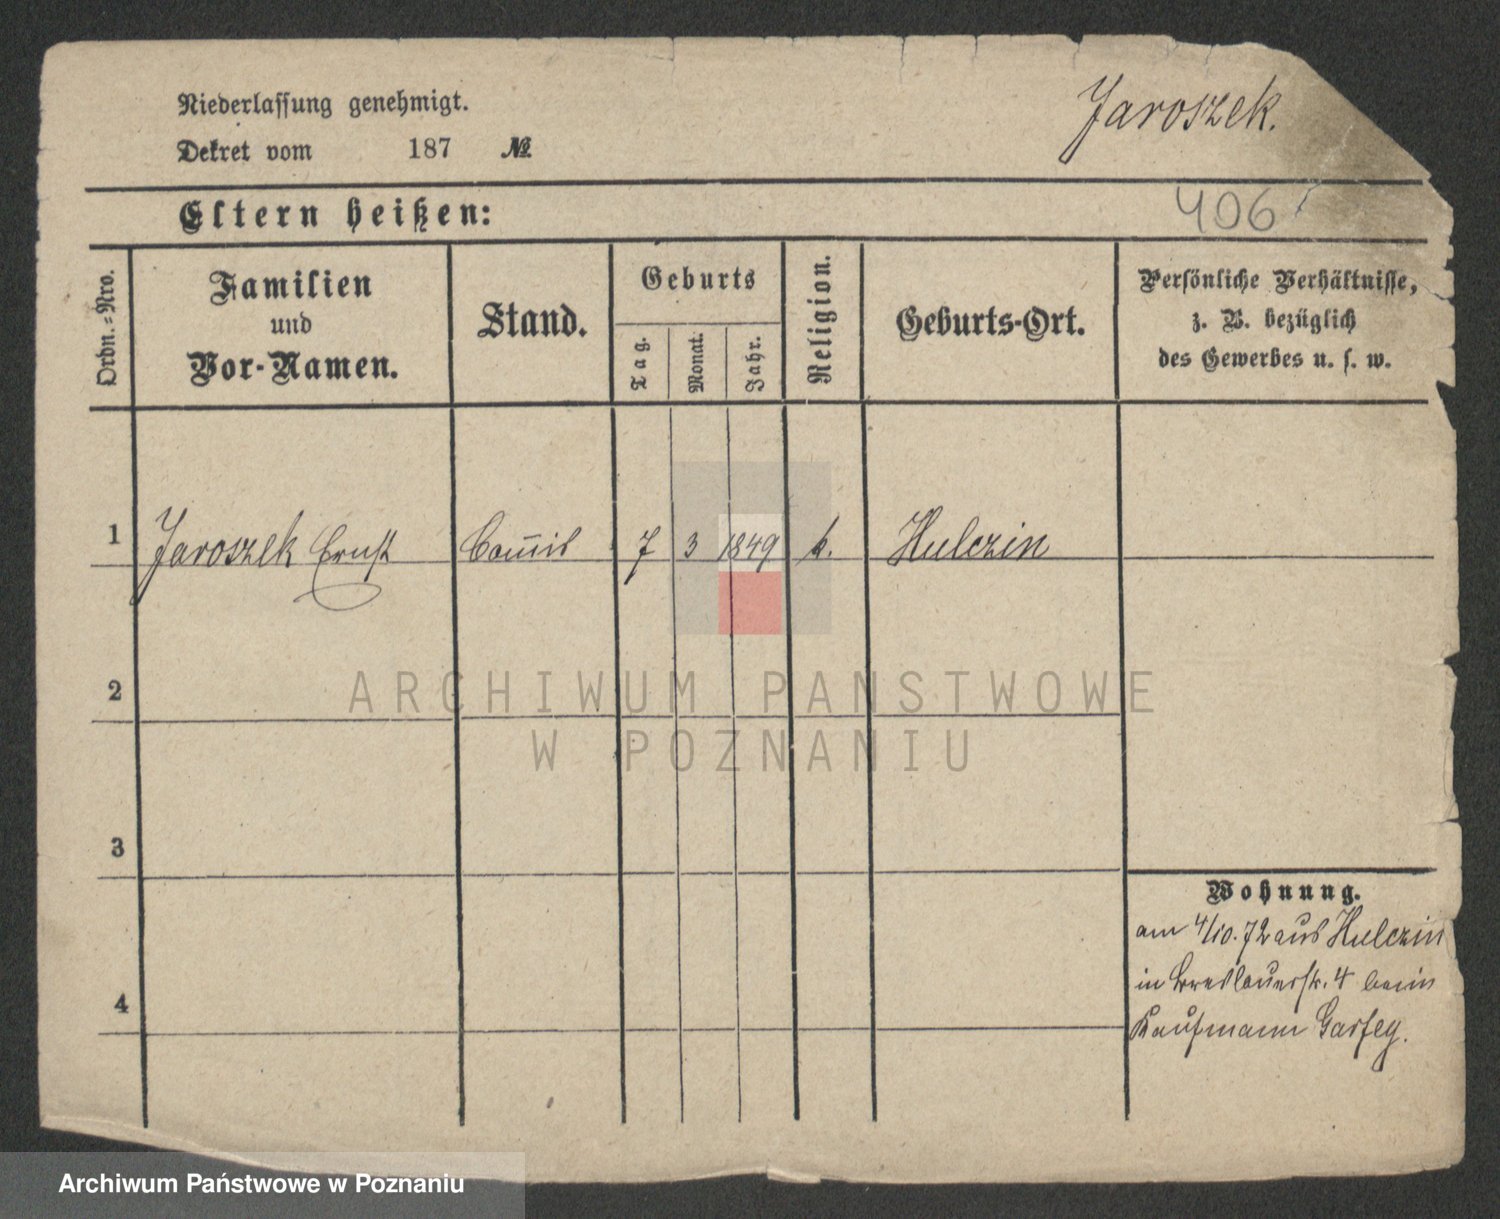 Niederlassung genehmigt.
Jaroszek.
Dekret vom 187 №
Eltern heißen:
406
Ordn.=Nro.
Familien
und
Vor-Namen.
Stand.
Geburts
Tag.
Monat.
Jahr.
Religion.
Geburts-Ort.
Persönliche Verhältnisse,
z. B. bezüglich
des Gewerbes u. s. w.
1 Jaroszek Ernst Com̄is 7 3 1849 k. Hulczin
2
3
4
Wohnung.
am 4/10. 72 aus Hulczin
in Breslauerstr. 4 beim
Kaufmann
ARCHIWUM PAŃSTWOWE
W POZNANIU
Archiwum Państwowe w Poznaniu